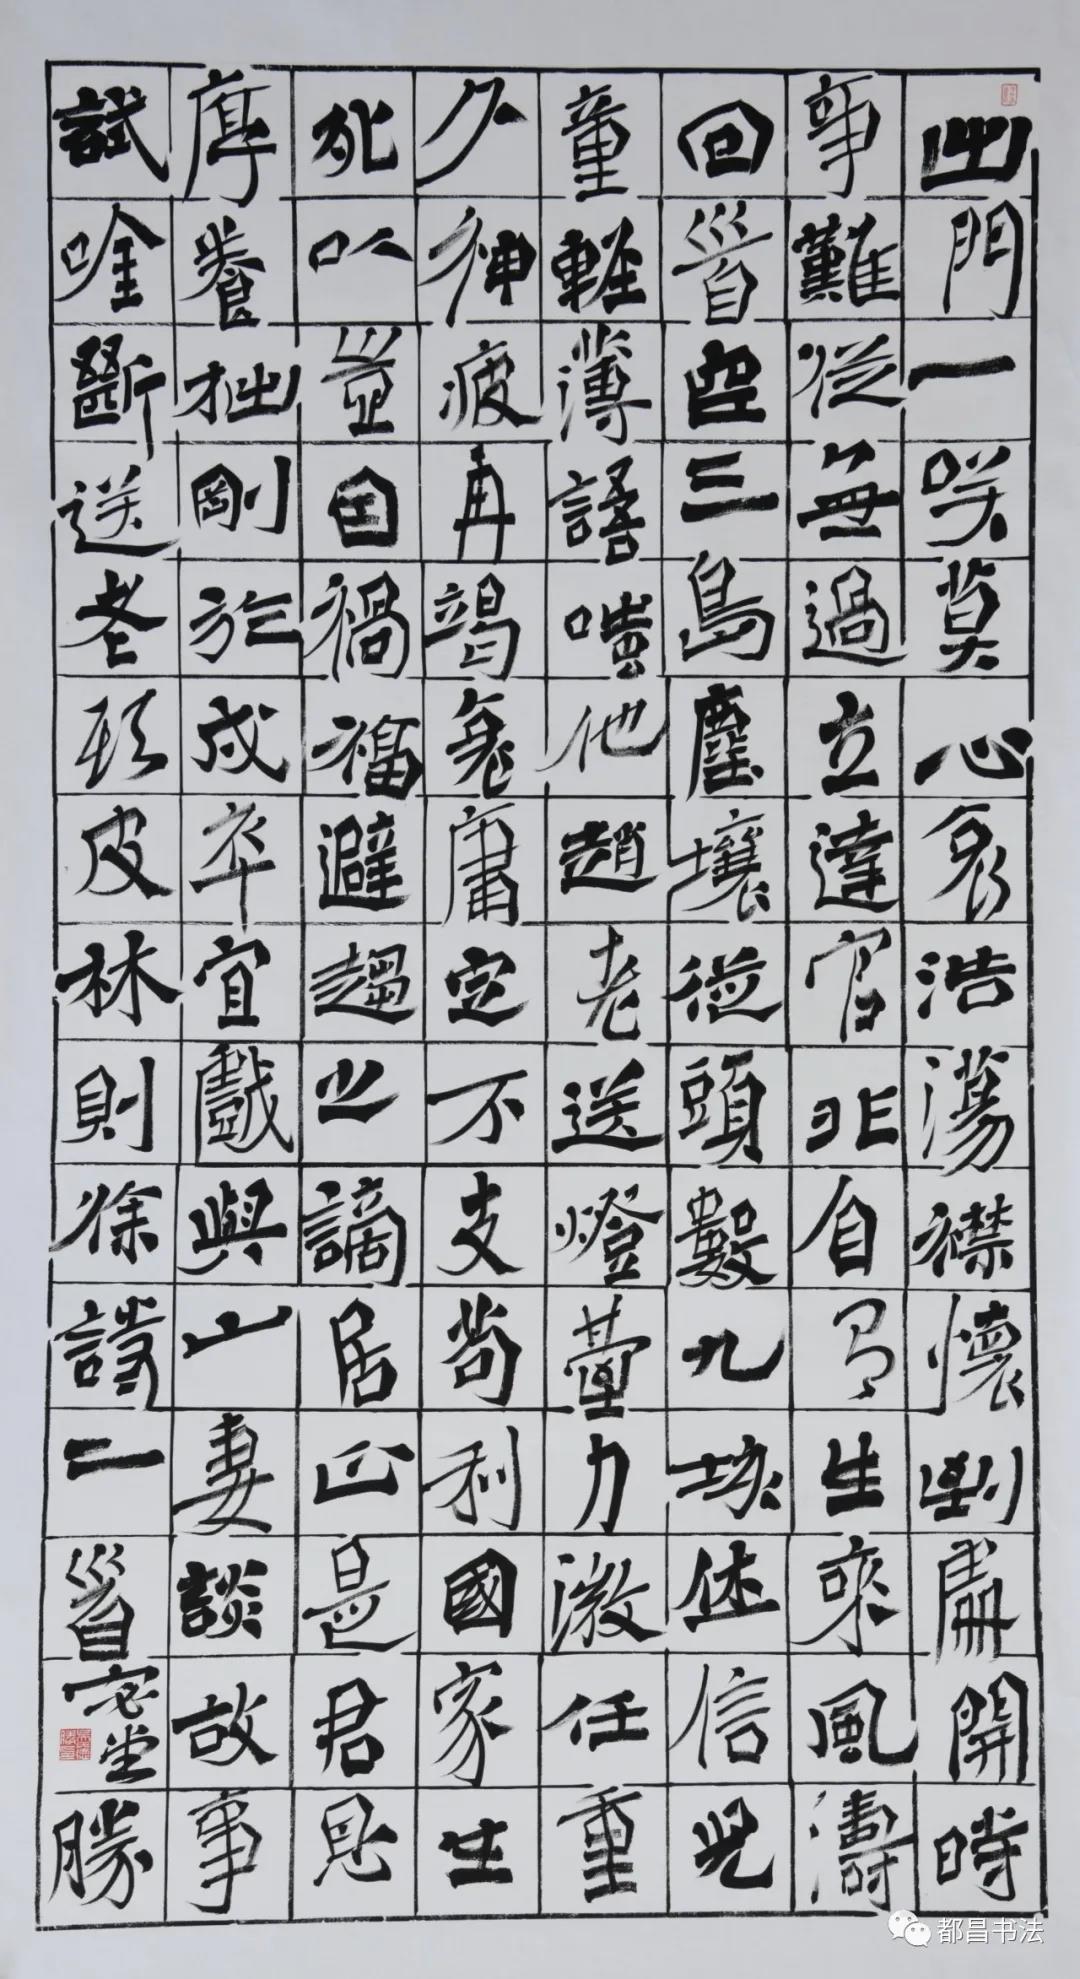 出門一咲莫心哀浩蕩襟懷到處開時
事難從無過立達官非自有生來風濤
回首空三島塵壤從頭數九垓休信兒
童輕薄語嗤他趙老送燈臺力微任重
久神疲再竭衰庸定不支苟利國家生
死以豈因禍福避趨之謫居正是君恩
厚養拙剛於戍卒宜戲與山妻談故事
試唫斷送老頭皮林則徐詩二首
勝
都昌书法